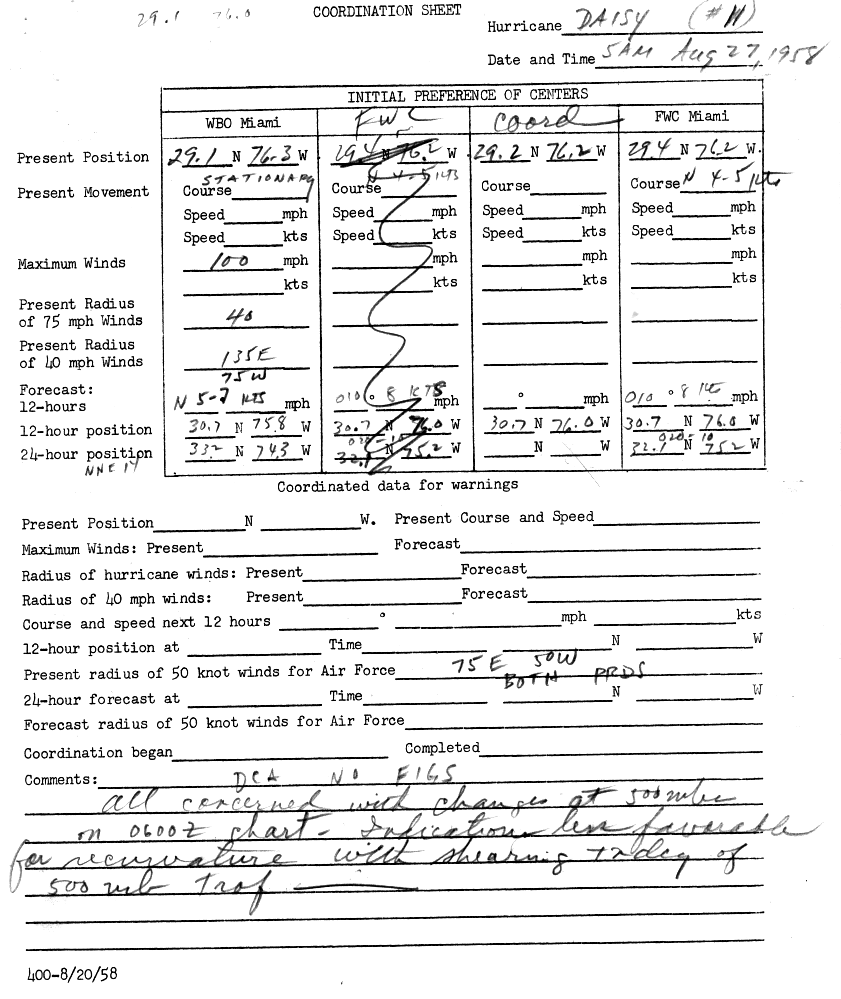 29.1 76.0 COORDINATION SHEET
Hurricane DAISY (#11)
Date and Time 5AM Aug 27, 1958
INITIAL PREFERENCE OF CENTERS
WBO Miami FWC Coord FWC Miami
Present Position 29.1 N 76.3 W 29.4 N 76.2 W 29.2 N 76.2 W 29.4 N 76.2 W.
STATIONARY N 4-5 KTS
Present Movement Course Course Course Course N 4-5 Kts
Speed mph Speed mph Speed mph Speed mph
Speed kts Speed kts Speed kts Speed kts
Maximum Winds 100 mph mph mph mph
kts kts kts kts
Present Radius
of 75 mph Winds 40
Present Radius
of 40 mph Winds 135E
75W
Forecast:
12-hours N 5-7 KTS mph 010° 8 KTS mph ° mph 010° 8 KTS mph
12-hour position 30.7 N 75.8 W 30.7 N 76.0 W 30.7 N 76.0 W 30.7 N 76.0 W
020-10 020-10
24-hour position 332 N 743 W 32.1 N 75.2 W N W 32.1 N 752 W
NNE 14
Coordinated data for warnings
Present Position N W. Present Course and Speed
Maximum Winds: Present Forecast
Radius of hurricane winds: Present Forecast
Radius of 40 mph winds: Present Forecast
Course and speed next 12 hours ° mph kts
12-hour position at Time N W
Present radius of 50 knot winds for Air Force 75 E 50W
BOTH PRDS
24-hour forecast at Time N W
Forecast radius of 50 knot winds for Air Force
Coordination began Completed
Comments: DCA NO FIGS
All concerned with changes at 500 mbs
on 0600Z chart - Indications less favorable
for recurvature with shearing tndcy of
500 mb Trof
400-8/20/58